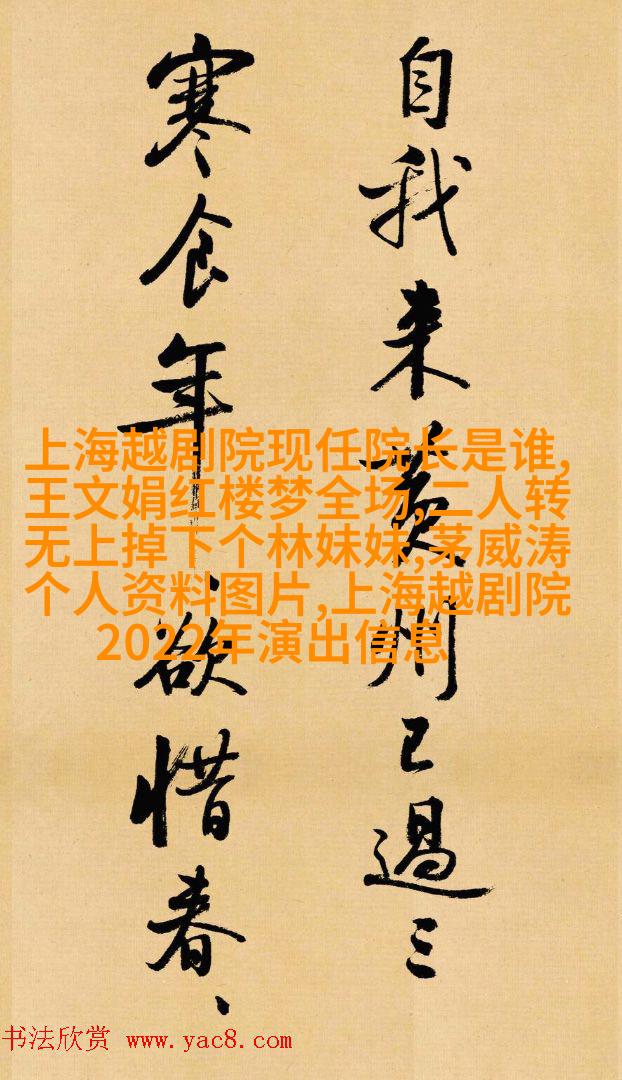 自我来黄州已過三
寒食年、欲惜春、
上海越剧院现任院长是谁,
王文娟红楼梦全场,二人转
无上掉下个林妹妹,茅威涛
个人资料图片,上海越剧院
2022年演出信息
书法欣赏 www.yac8.com